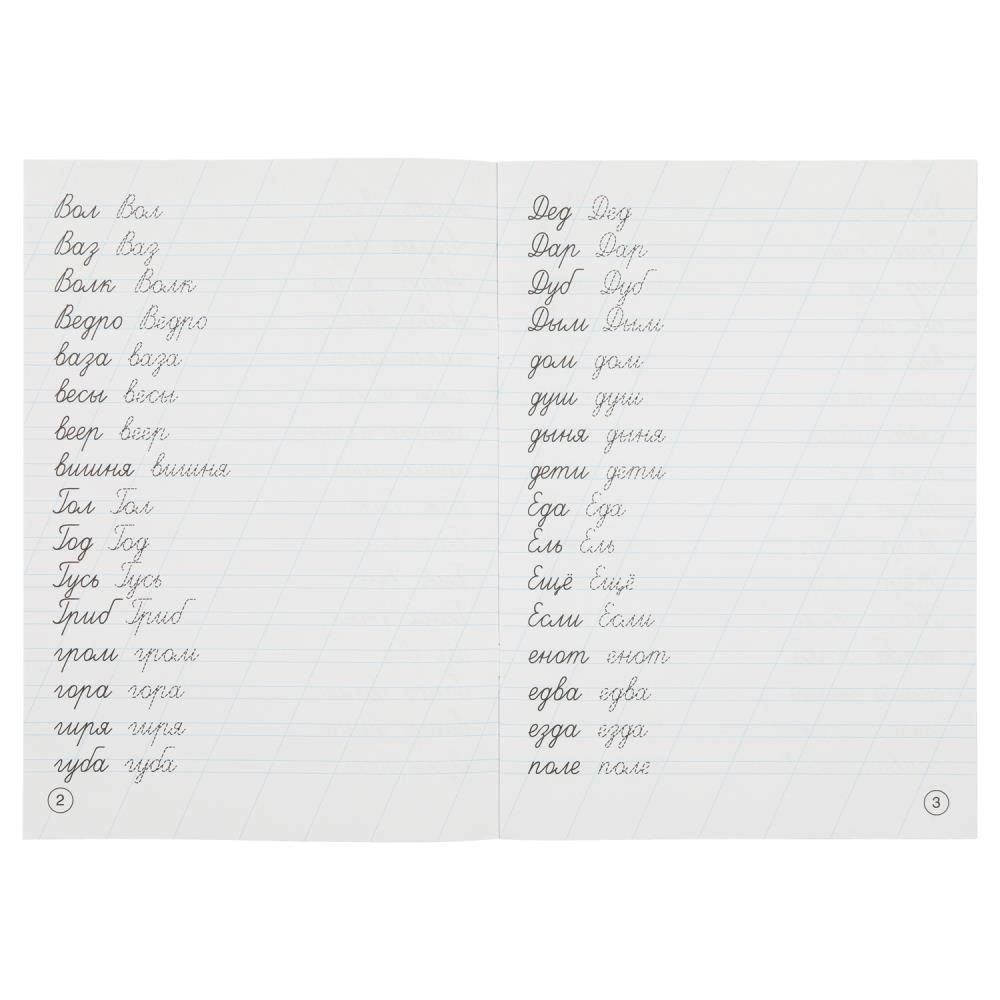 Вол Вол
Ваз Ваз
Волк Волк
Ведро Ведро
ваза ваза
весы весы
веер веер
вишня вишня
Гол Гол
Год Год
Гусь Гусь
Гриб Гриб
гром гром
гора гора
гиря гиря
губа губа
2
Дед Дед
Дар Дар
Дуб Дуб
Дым Дым
дом дом
душ душ
дыня дыня
дети дети
Еда Еда
Ель Ель
Ещё Ещё
Если Если
енот енот
едва едва
езда езда
поле поле
3